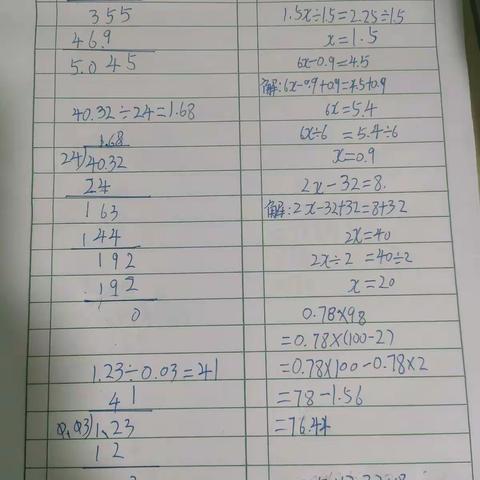 355
46.9
5.045
40.32÷24=1.68
1.68
24 40.32
24
163
144
192
192
0
1.23÷0.03=41
41
0.03 1.23
12
1.5x÷1.5=2.25÷1.5
x=1.5
6x-0.9=4.5
解:6x-0.9+0.9=4.5+0.9
6x=5.4
6x÷6=5.4÷6
x=0.9
2x-32=8.
解:2x-32+32=8+32
2x=40
2x÷2=40÷2
x=20
0.78×98
=0.78×(100-2)
=0.78×100-0.78×2
=78-1.56
=76.44